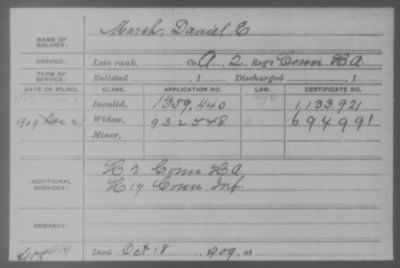 NAME OF SOLDIER: Marsh, Daniel E
SERVICE: Late rank, Co. A, 2 Reg't Conn H A
TERM OF SERVICE: Enlisted , 1 Discharged , 1
DATE OF FILING. CLASS. APPLICATION NO. LAW. CERTIFICATE NO.
Invalid, 1359,440 1,133921
1909 Dec 21 Widow, 932548 694991
Minor,
ADDITIONAL SERVICES: H 2 Conn H A
H 19 Conn Inf
REMARKS:
Died Oct 18, 1909, at